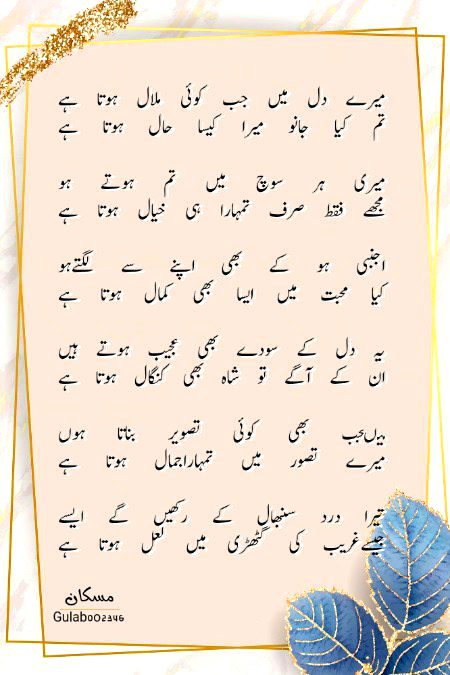 میرے دل میں جب کوئی ملال ہوتا ہے
تم کیا جانو میرا کیسا حال ہوتا ہے
میری ہر سوچ میں تم ہوتے ہو
مجھے فقط صرف تمہارا ہی خیال ہوتا ہے
اجنبی ہو کے بھی اپنے سے لگتےہو
کیا محبت میں ایسا بھی کمال ہوتا ہے
یہ دل کے سودے بھی عجیب ہوتے ہیں
ان کے آگے تو شاہ بھی کنگال ہوتا ہے
میںجب بھی کوئی تصویر بناتا ہوں
میرے تصور میں تمہاراجمال ہوتا ہے
تیرا درد سنبھال کے رکھیں گے ایسے
جیسےغریب کی گٹھڑی میں لعل ہوتا ہے
مسکان
Gulaboo2346